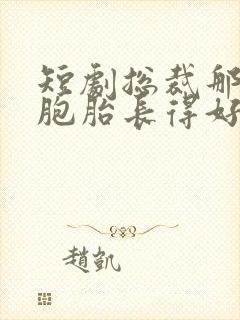 短劇总裁那
胞胎長得好
趙凱